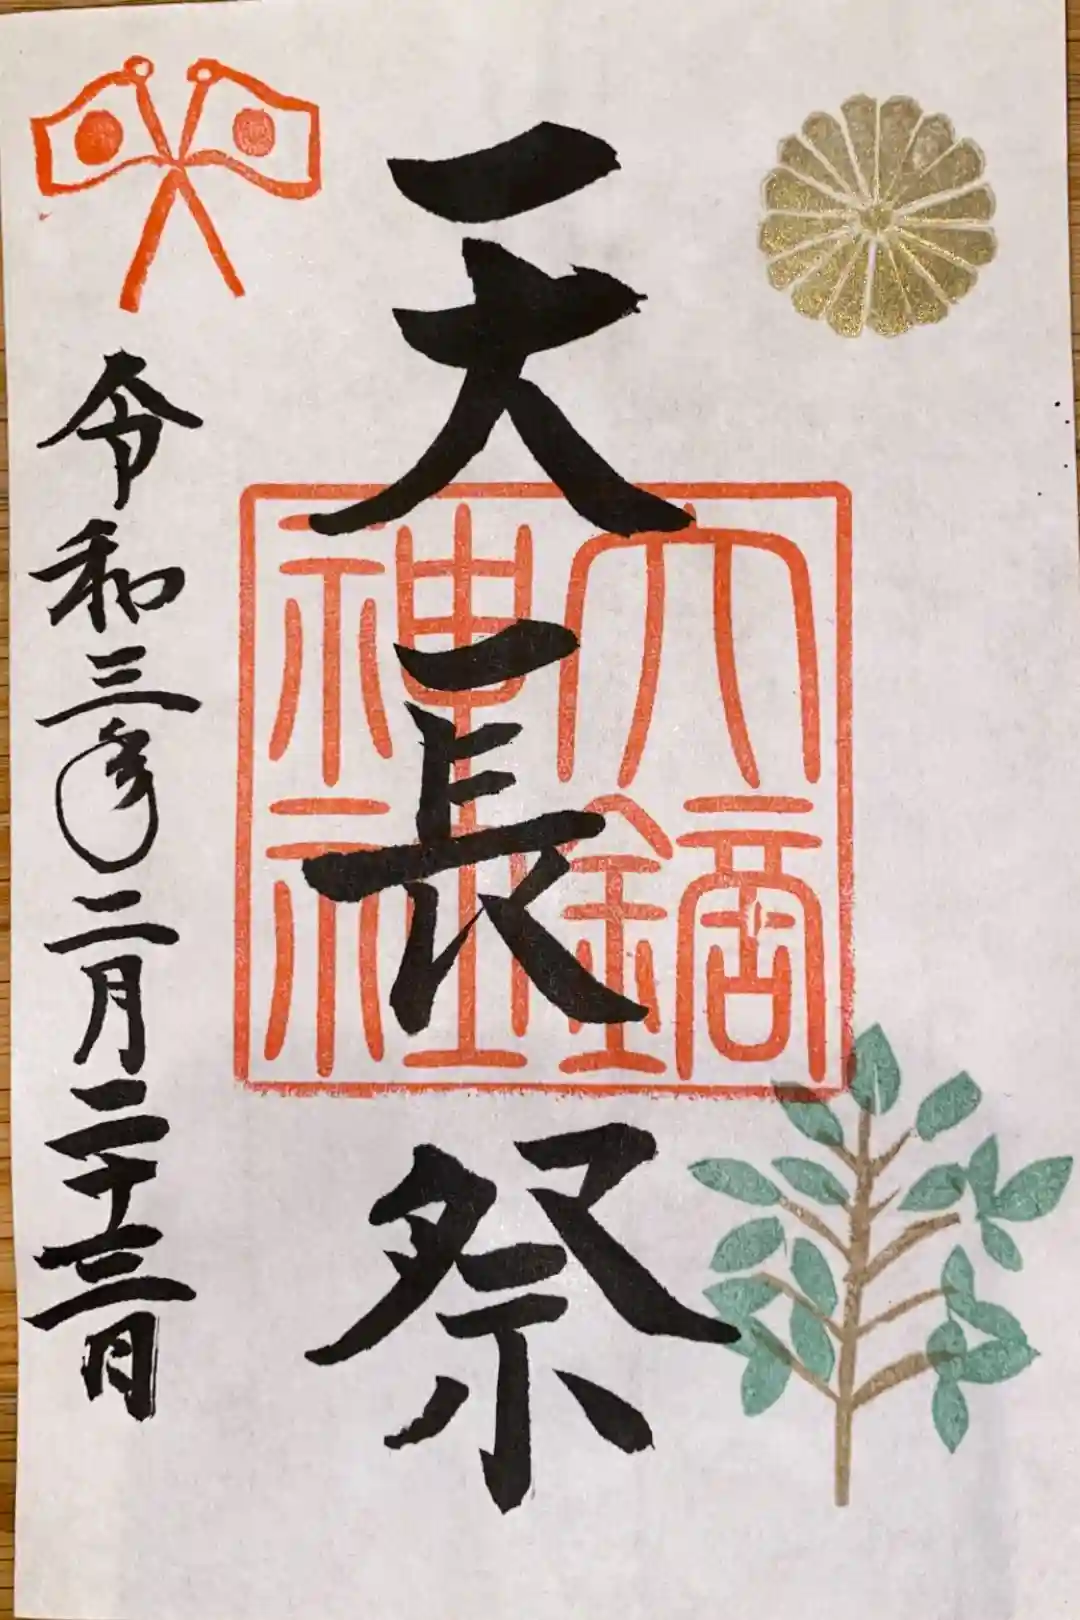 天長祭
令和三年二月二十三日
神社